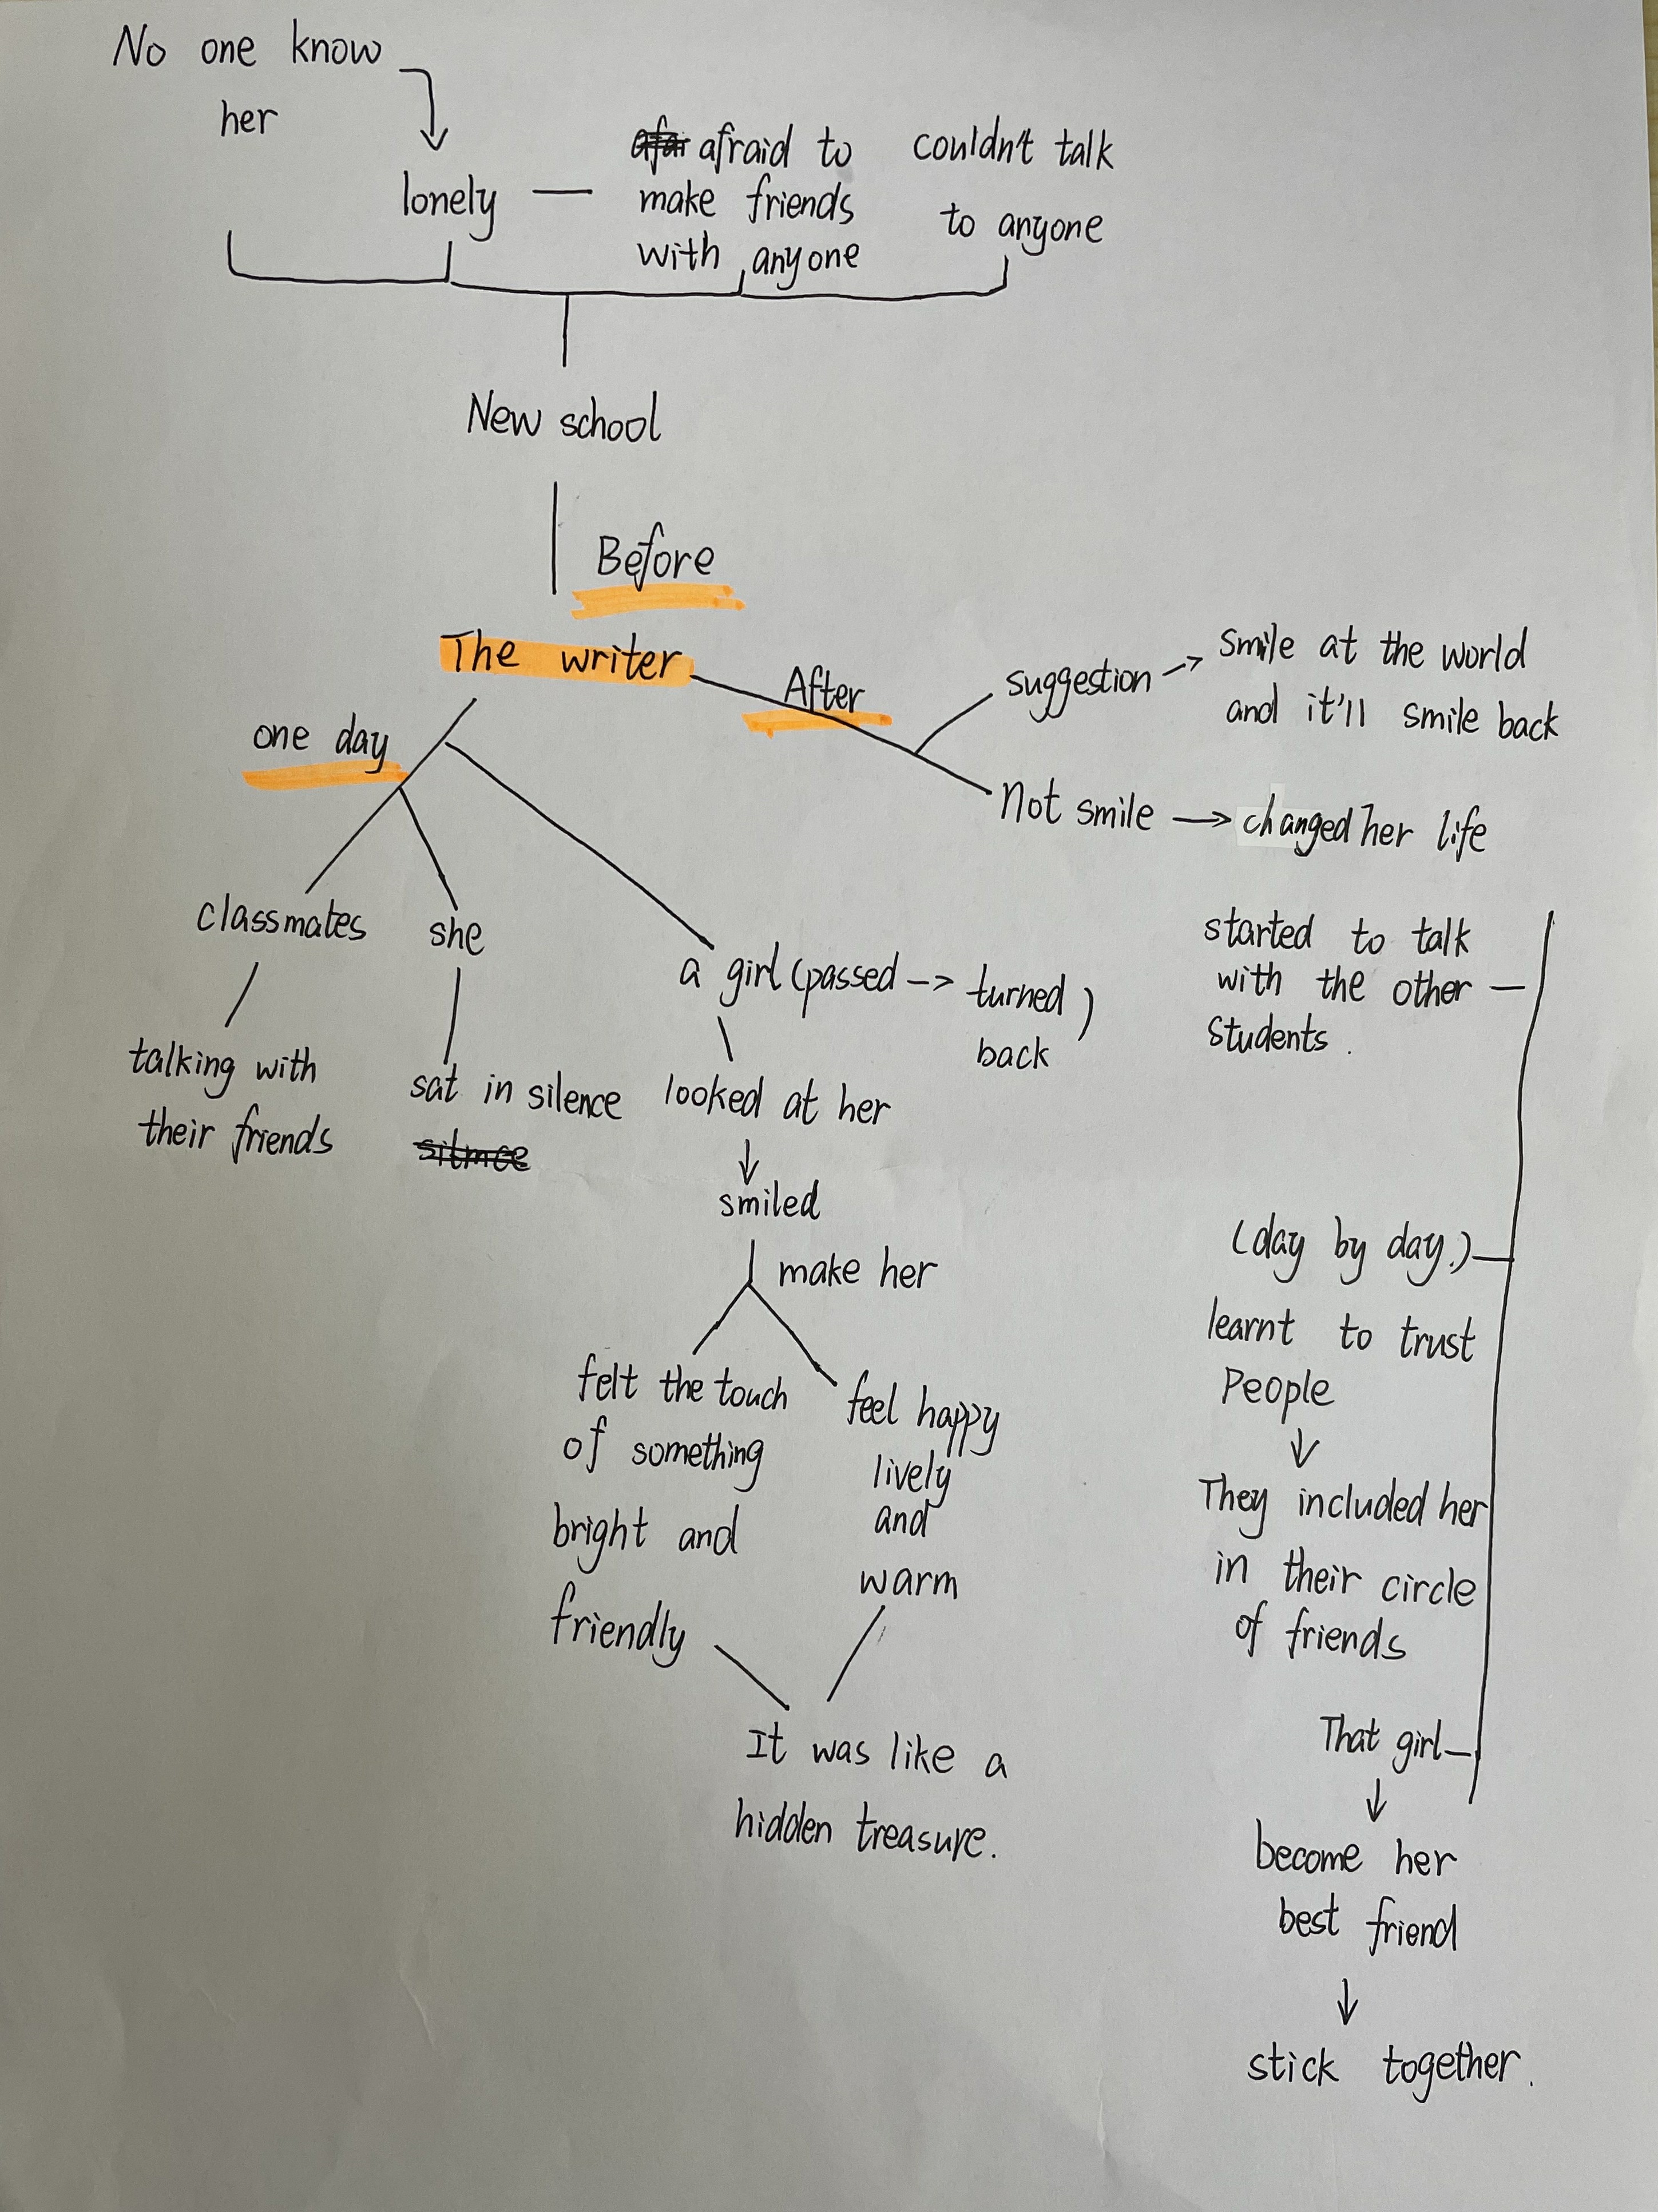 No one know
her
lonely
afraid to
make friends
with anyone
couldn't talk
to anyone
New school
Before
The writer
After
suggestion
smile at the world
and it'll smile back
Not smile
changed her life
one day
classmates
talking with
their friends
she
sat in silence
a girl (passed -> turned)
back
looked at her
smiled
make her
felt the touch
of something
bright and
friendly
feel happy
lively
and
warm
It was like a
hidden treasure.
started to talk
with the other
students.
(day by day.)
learnt to trust
People
They included her
in their circle
of friends
That girl
become her
best friend
stick together.